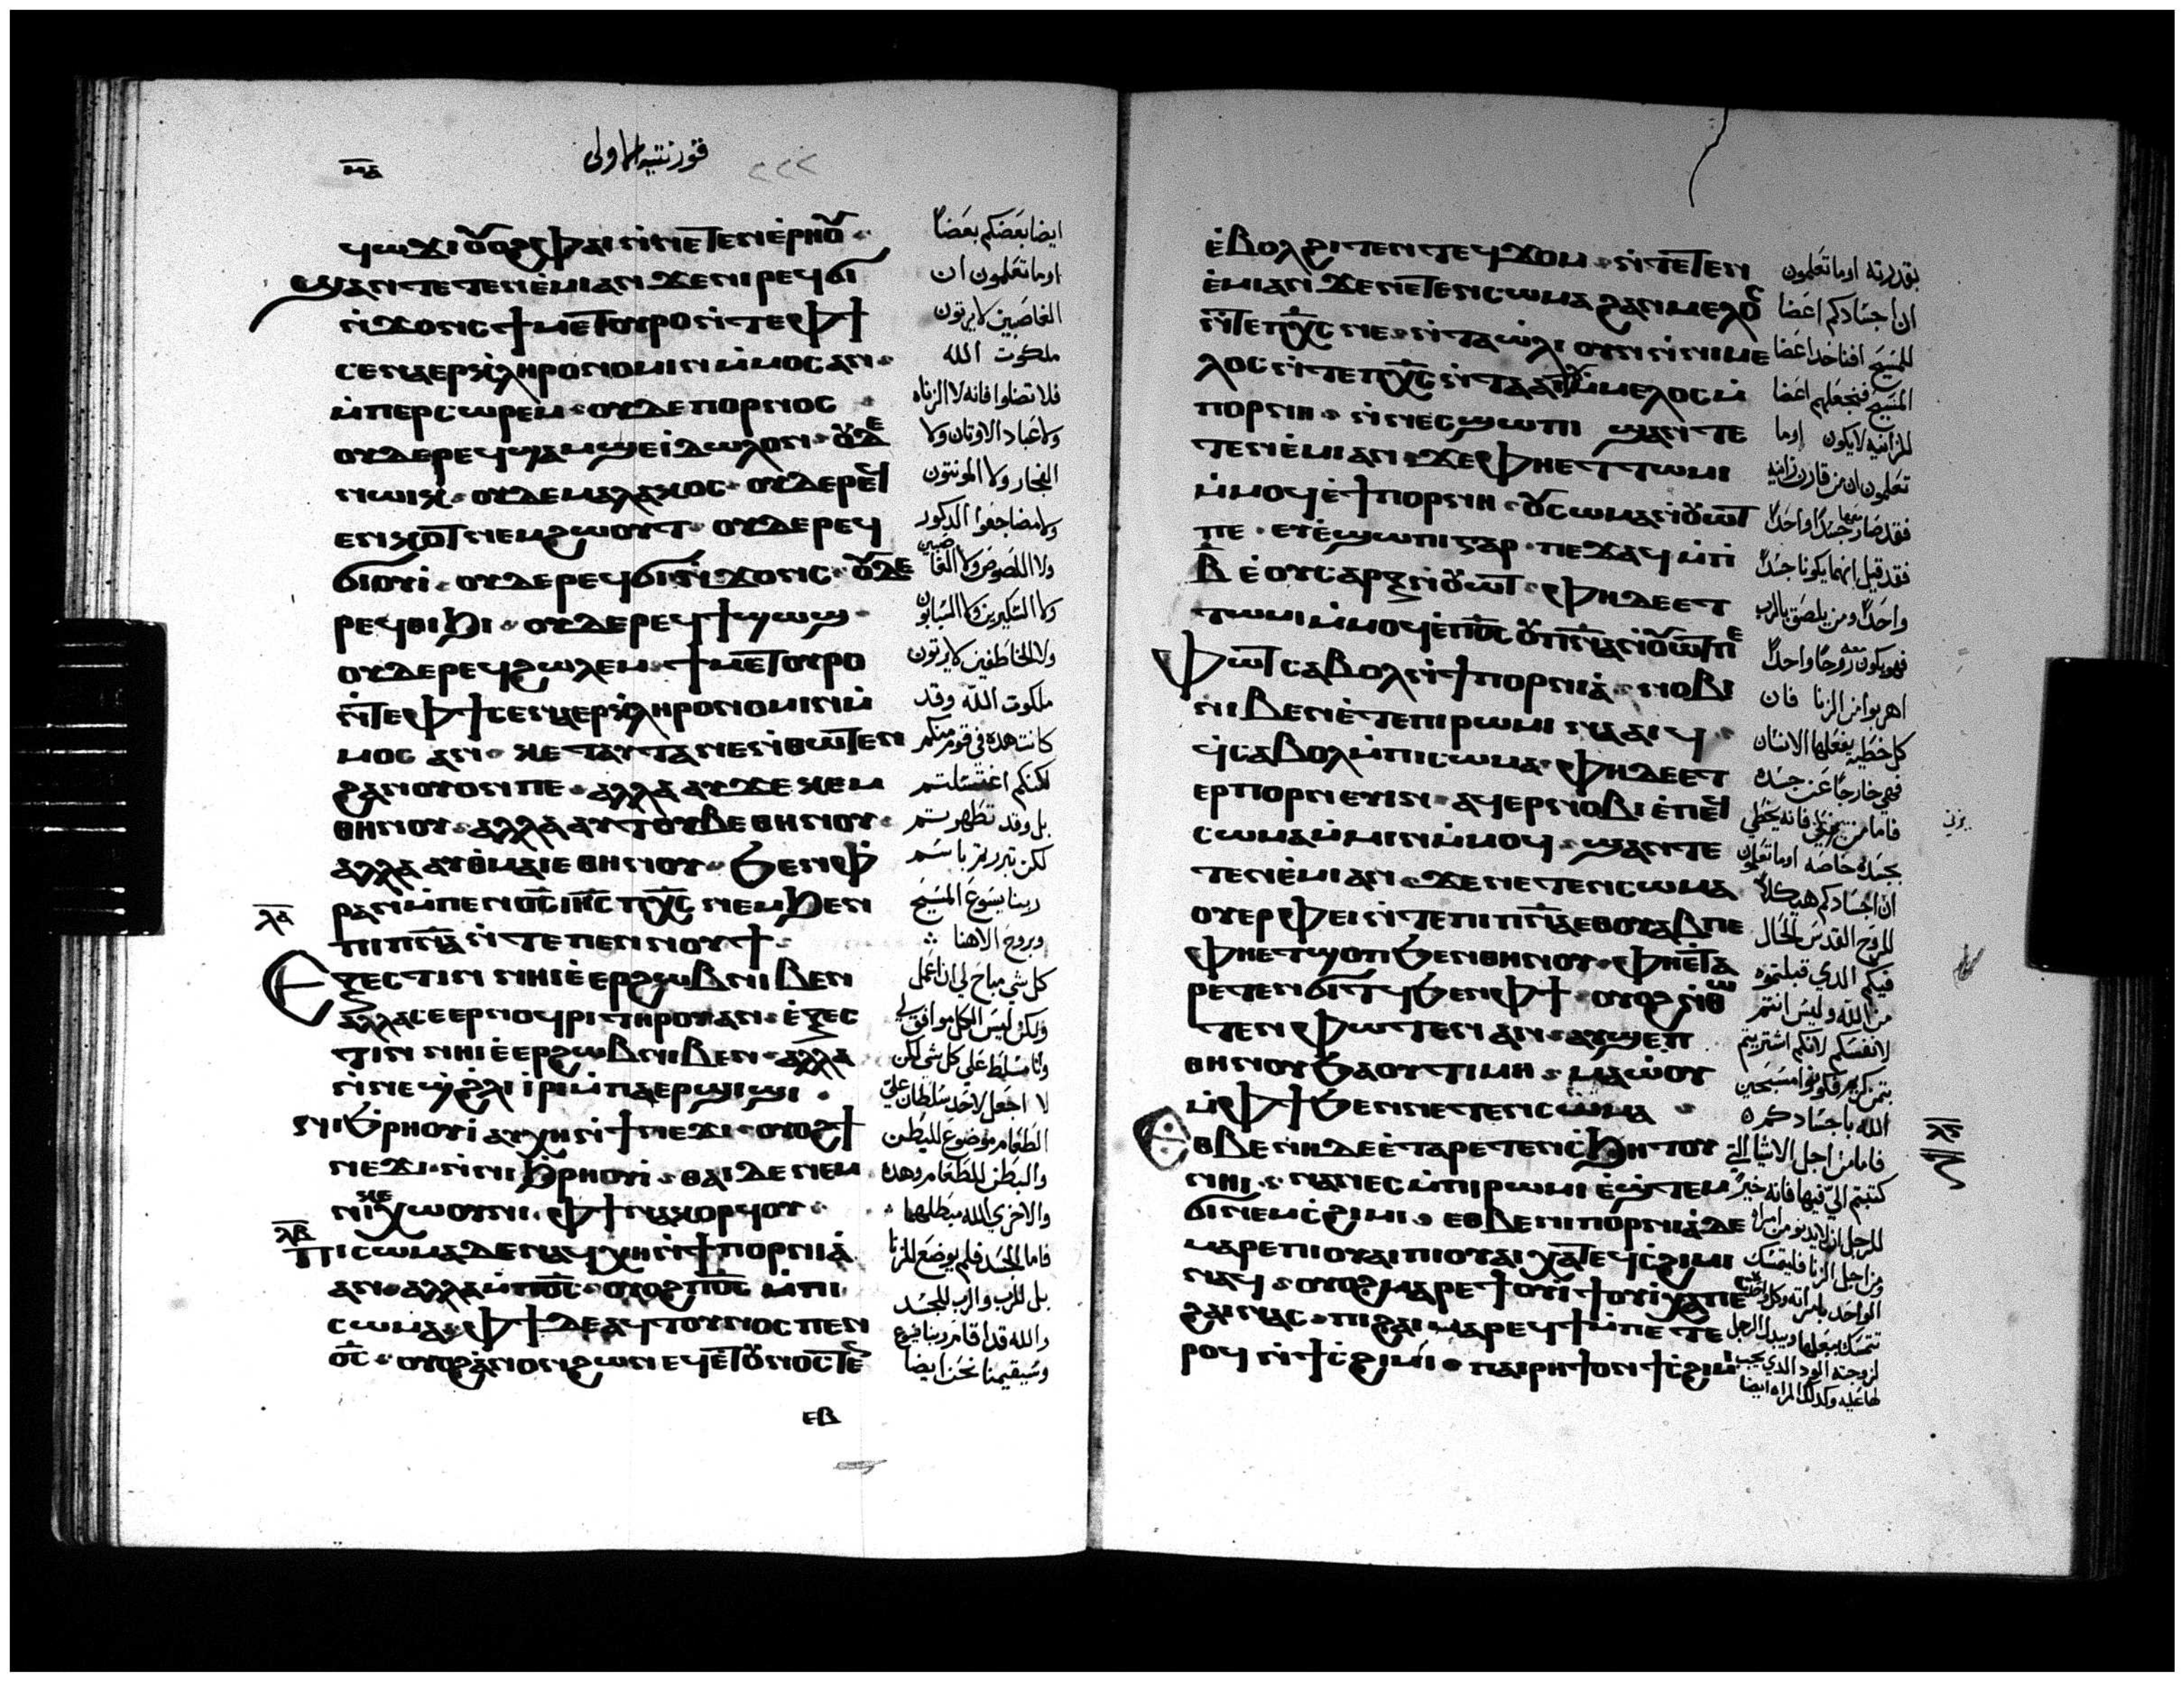 ⲙⲁ
قورنتيه الاولى
ϥⲱϫⲓ ⲟⲩⲟϩ ⲫⲁⲓ ⲛⲛⲉⲧⲉⲛⲉⲣⲏⲟⲩ
ϣⲁⲛ ⲧⲉⲧⲉⲛⲉⲙⲓ ⲁⲛ ϫⲉ ⲛⲓⲣⲉϥϭⲓ
ⲛϫⲟⲛⲥ ϯⲙⲉⲧⲟⲩⲣⲟ ⲛⲧⲉ ⲫϯ
ⲥⲉⲛⲁⲉⲣⲕⲗⲏⲣⲟⲛⲟⲙⲓⲛ ⲙⲙⲟⲥ ⲁⲛ
ⲙⲡⲉⲣⲥⲱⲣⲉⲙ ⲟⲩⲇⲉ ⲡⲟⲣⲛⲟⲥ
ⲟⲩⲇⲉ ⲣⲉϥϣⲁⲙϣⲉ ⲓⲇⲱⲗⲟⲛ ⲟⲩⲇⲉ
ⲛⲱⲓⲕ ⲟⲩⲇⲉ ⲙⲁⲗⲁⲕⲟⲥ ⲟⲩⲇⲉ ⲣⲉϥ
ⲉⲛⲕⲟⲧ ⲛⲉⲙ ϩⲱⲟⲩⲧ ⲟⲩⲇⲉ ⲣⲉϥ
ϭⲓⲟⲩⲓ ⲟⲩⲇⲉ ⲣⲉϥϭⲓⲛϫⲟⲛⲥ ⲟⲩⲇⲉ
ⲣⲉϥⲑⲓϧⲓ ⲟⲩⲇⲉ ⲣⲉϥϯϣⲱϣ
ⲟⲩⲇⲉ ⲣⲉϥϩⲱⲗⲉⲙ ϯⲙⲉⲧⲟⲩⲣⲟ
ⲛⲧⲉ ⲫϯ ⲥⲉⲛⲁⲉⲣⲕⲗⲏⲣⲟⲛⲟⲙⲓⲛ ⲙ
ⲙⲟⲥ ⲁⲛ ⲕⲉ ⲧⲁⲩⲧⲁ ⲛⲉ ⲛⲑⲱⲧⲉⲛ
ϩⲁⲛⲟⲩⲟⲛ ⲡⲉ ⲁⲗⲗⲁ ⲁⲩϫⲉⲕⲉⲙ
ⲑⲏⲛⲟⲩ ⲁⲗⲗⲁ ⲁⲩⲧⲟⲩⲃⲉ ⲑⲏⲛⲟⲩ
ⲁⲗⲗⲁ ⲁⲩⲑⲙⲁⲓⲉ ⲑⲏⲛⲟⲩ ϧⲉⲛ ⲫ
ⲣⲁⲛ ⲙⲡⲉⲛⲟⲥ ⲓⲏⲥ ⲡⲭⲥ ⲛⲉⲙ ϧⲉⲛ
ⲗⲁ
ⲡⲓⲡⲛⲁ ⲛⲧⲉ ⲡⲉⲛⲛⲟⲩϯ
ⲉⲝⲉⲥⲧⲓⲛ ⲛⲏⲓ ⲉⲉⲣϩⲱⲃ ⲛⲓⲃⲉⲛ
ⲁⲗⲗⲁ ⲥⲉⲉⲣⲛⲟϥⲣⲓ ⲧⲏⲣⲟⲩ ⲁⲛ ⲉⲝⲉⲥ
ⲧⲓⲛ ⲛⲏⲓ ⲉⲉⲣϩⲱⲃ ⲛⲓⲃⲉⲛ ⲁⲗⲗⲁ
ⲛⲛⲉϥ ϩⲗⲓ ⲓⲣⲓ ⲙⲡⲁⲉⲣϣⲓϣⲓ
ⲛⲓϧⲣⲏⲟⲩⲓ ⲁⲩⲭⲏ ⲛϯⲛⲉϫⲓ ⲟⲩⲟϩ ϯ
ⲛⲉϫⲓ ⲛⲛⲓϧⲣⲏⲟⲩⲓ ⲑⲁⲓ ⲇⲉ ⲛⲉⲙ
ⲛⲓⲕⲉⲭⲱⲟⲩⲛⲓ ⲫϯ ⲛⲁⲕⲟⲣϥⲟⲩ
ⲗⲃ
ⲡⲓⲥⲱⲙⲁ ⲇⲉ ⲛⲁϥⲭⲏ ⲛϯⲡⲟⲣⲛⲓⲁ
ⲁⲛ ⲁⲗⲗⲁ ⲙⲡⲟⲥ ⲟⲩⲟϩ ⲡⲟⲥ ⲙⲡⲓ
ⲥⲱⲙⲁ ⲫϯ ⲇⲉ ⲁϥⲧⲟⲩⲛⲟⲥ ⲡⲉⲛ
ⲟⲥ ⲟⲩⲟϩ ⲁⲛⲟⲛ ϩⲱⲛ ⲉϥⲉⲧⲟⲩⲛⲟⲥⲧⲉⲛ
ⲉⲃ
ايضا بعضكم بعضا
اوما تعلمون ان
الغاصبين لا يرثون
ملكوت الله
فلا تضلوا فانه لا الزناه
ولا عباد الاوثان ولا
الفجار ولا المونتون
ولا مضاجعوا الدكور
ولا اللصوص ولا الغاصبين
ولا السكيرين ولا السبابون
ولا الخاطفين لا يرثون
ملكوت الله وقد
كانت هده في قوم منكم
لكنكم اغتسلتم
بل وقد تطهرتم
لكن تبررتم باسم
ربنا يسوع المسيح
وبروح الاهنا
كل شي مباح لي ان اعمل
ولكن ليس الكل موافق لي
وانا مسلط على كل شي لكن
لا اجعل لاحد سلطان علي
الطعام موضوع للبطن
والبطن للطعام وهده
والاخرى الله مبطلهما
فاما الجسد فلم يوضع للزنا
بل للرب والرب للجسد
والله قد اقام ربنا يسوع
وسيقيمنا نحن ايضا
ⲉⲃⲟⲗϩⲓⲧⲉⲛ ⲧⲉϥϫⲟⲙ ⲛⲧⲉⲧⲉⲛ
ⲉⲙⲓ ⲁⲛ ϫⲉ ⲛⲉⲧⲉⲛⲥⲱⲙⲁ ϩⲁⲛⲙⲉⲗⲟⲥ
ⲛⲧⲉ ⲡⲭⲥ ⲛⲉ ⲛⲧⲁⲱⲗⲓ ⲟⲩⲛ ⲛⲛⲓⲙⲉ
ⲗⲟⲥ ⲛⲧⲉ ⲡⲭⲥ ⲛⲧⲁⲁⲓⲧⲟⲩ ⲙⲙⲉⲗⲟⲥ ⲙ
ⲡⲟⲣⲛⲏ ⲛⲛⲉⲥϣⲱⲡⲓ ϣⲁⲛ ⲧⲉ
ⲧⲉⲛⲉⲙⲓ ⲁⲛ ϫⲉ ⲫⲏ ⲉⲧⲧⲱⲙⲓ
ⲙⲙⲟϥ ⲉϯⲡⲟⲣⲛⲏ ⲟⲩⲥⲱⲙⲁ ⲛⲟⲩⲱⲧ
ⲡⲉ ⲉⲩⲉϣⲱⲡⲓ ⲅⲁⲣ ⲡⲉϫⲁϥ ⲙⲡⲓ
ⲃ ⲉⲟⲩⲥⲁⲣⲝ ⲛⲟⲩⲱⲧ ⲫⲏ ⲇⲉ ⲉⲧ
ⲧⲱⲙⲓ ⲙⲙⲟϥ ⲉⲡⲟⲥ ⲟⲩⲡⲛⲁ ⲛⲟⲩⲱⲧ ⲡⲉ
ⲫⲱⲧ ⲥⲁⲃⲟⲗ ⲛϯⲡⲟⲣⲛⲓⲁ ⲛⲟⲃⲓ
ⲛⲓⲃⲉⲛ ⲉⲧⲉ ⲡⲓⲣⲱⲙⲓ ⲛⲁⲁⲓϥ
ϥⲥⲁⲃⲟⲗ ⲙⲡⲓⲥⲱⲙⲁ ⲫⲏ ⲇⲉ ⲉⲧ
ⲉⲣⲡⲟⲣⲛⲉⲩⲓⲛ ⲁϥⲉⲣⲛⲟⲃⲓ ⲉⲡⲉϥ
ⲥⲱⲙⲁ ⲙⲙⲓⲛ ⲙⲙⲟϥ ϣⲁⲛ ⲧⲉ
ⲧⲉⲛⲉⲙⲓ ⲁⲛ ϫⲉ ⲛⲉⲧⲉⲛⲥⲱⲙⲁ
ⲟⲩⲉⲣⲫⲉⲓ ⲛⲧⲉ ⲡⲓⲡⲛⲁ ⲉⲑⲟⲩⲁⲃ ⲡⲉ
ⲫⲏ ⲉⲧϣⲟⲡ ϧⲉⲛ ⲑⲏⲛⲟⲩ ⲫⲏ ⲉⲧⲁ
ⲣⲉⲧⲉⲛϭⲓⲧϥ ϧⲉⲛ ⲫϯ ⲟⲩⲟϩ ⲛⲑⲱ
ⲧⲉⲛ ⲫⲱⲧⲉⲛ ⲁⲛ ⲁⲩϣⲉⲡ
ⲑⲏⲛⲟⲩ ϧⲁ ⲟⲩⲧⲓⲙⲏ ⲙⲁⲱⲟⲩ
ⲙⲫϯ ϧⲉⲛ ⲛⲉⲧⲉⲛⲥⲱⲙⲁ
ⲉⲑⲃⲉ ⲛⲏ ⲇⲉ ⲉⲧⲁⲣⲉⲧⲉⲛⲥϧⲏⲧⲟⲩ
ⲛⲏⲓ ⲛⲁⲛⲉⲥ ⲙⲡⲓⲣⲱⲙⲓ ⲉϣⲧⲉⲙ
ϭⲓⲛⲉⲙ ⲥϩⲓⲙⲓ ⲉⲑⲃⲉ ⲛⲓⲡⲟⲣⲛⲓⲁ ⲇⲉ
ⲙⲁⲣⲉ ⲡⲓⲟⲩⲁⲓ ⲡⲓⲟⲩⲁⲓ ⲭⲁ ⲧⲉϥⲥϩⲓⲙⲓ
ⲛⲁϥ ⲟⲩⲟϩ ⲙⲁⲣⲉ ϯⲟⲩⲓ ϯⲟⲩⲓ ⲭⲁ ⲡⲉⲥ
ϩⲁⲓ ⲛⲁⲥ ⲡⲓϩⲁⲓ ⲙⲁⲣⲉϥϯ ⲙⲡⲉⲧⲉ
ⲣⲟϥ ⲛϯⲥϩⲓⲙⲓ ⲡⲁⲓⲣⲏϯ ⲟⲛ ϯⲥϩⲓⲙⲓ
بقدرته اوما تعلمون
ان اجسادكم اعضا
للمسيح افناخد اعضا
المسيح فنجعلهم اعضا
للزانيه لا يكون اوما
تعلمون ان من قارن زانيه
فقد صار معها جسدا واحدا
فقد قيل انهما يكونا جسدا
واحدا ومن يلصق بالرب
فهو يكون معه روحا واحدا
اهربوا من الزنا فان
كل خطيه يفعلها الانسان
فهي خارجا عن جسده
يزني
بجسده خاصه اوما تعلمون
ان اجسادكم هيكلا
للروح القدس الحال
فيكم الدي قبلتموه
من الله وليس انتم
لانفسكم لانكم اشتريتم
بثمن كريم فكونوا مسبحين
الله باجسادكم
ⲗⲅ
فاما من اجل الاشيا التي
كتبتم الي فيها فانه خير
للرجل ان لا يدنو من امراه
ومن اجل الزنا فليتمسك
الواحد بامراته وكل واحده
تتمسك ببعلها ويبدل الرجل
لزوجته الود الدي يجب
لها عليه وكدلك المراه ايضا